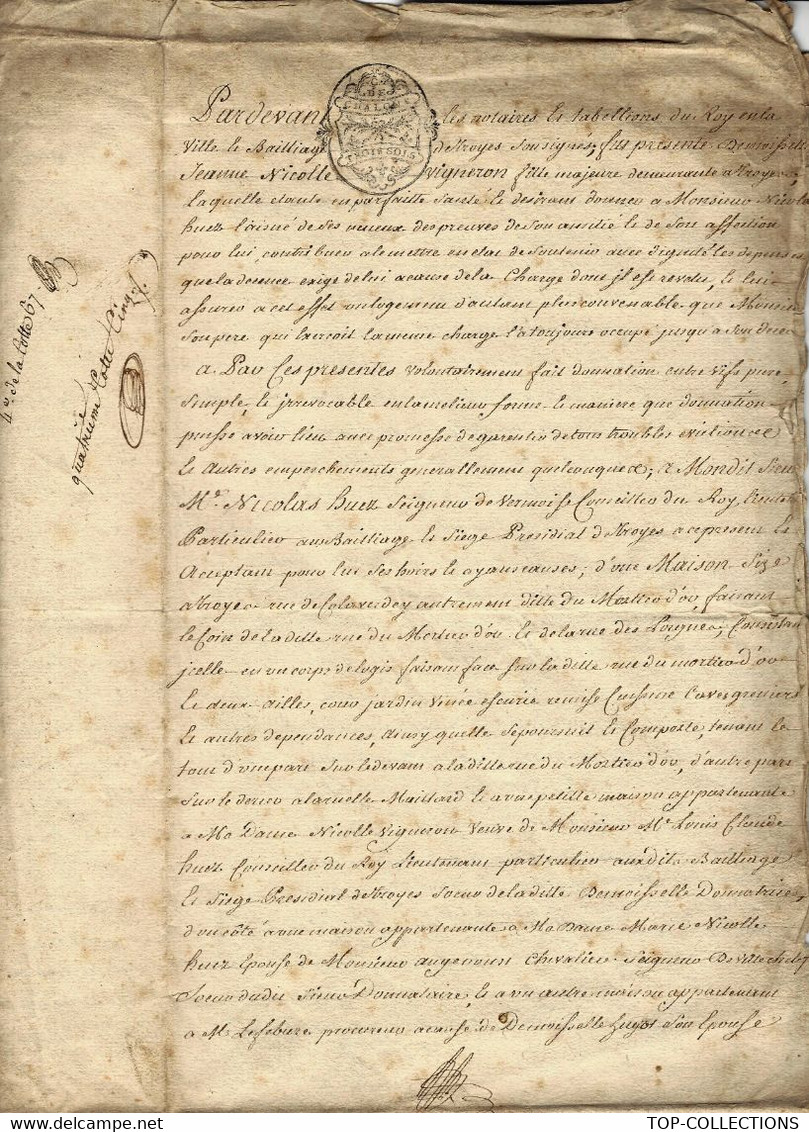 4e de la Cotte 67.
quatrieme Cotte Cinq.
G DE
CHALONS
TROIS SOLS
Pardevant les notaires et tabellions du Roy en la
Ville et Bailliage de Troyes soussignés, fut presente Demoiselle
Jeanne Nicolle Vigneron fille majeure demeurante a Troyes
laquelle etante en parfaitte santé et desirant donner a Monsieur Nicolas
huez l'aisné de ses neveux des preuves de son amitié et de son affection
pour lui, contribuer a le mettre en etat de soutenir avec dignité les depenses
que la decence exige de lui a cause de la Charge dont il est revetu, et lui
assurer a cet effet un logement d'autant plus convenable que Monsieur
son pere qui exercoit la meme charge l'a toujours occupé jusqu'a son deces
a Par Ces presentes volontairement fait donnation entre vifs pure
simple, et irrevocable en la melieur forme et maniere que donnation
puisse avoir lieu avec promesse de garentir de tous troubles evictions
et autres empechements generallement quelconques; a Mondit Sieur
Me. Nicolas huez Seigneur de Vermoise Conseiller du Roy, lieutenant
Particulier au Bailliage et Siege Presidial de Troyes a ce present et
Acceptant pour lui ses hoirs et ayans causes; d'une Maison Size
a Troyes rue de Colaverdey autrement ditte du Mortier d'or, faisant
le coin de la ditte rue du Mortier d'or et de la rue des Lorgnes, Consistant
icelle en un corps de logis faisant face sur la ditte rue du mortier d'or
et deux ailles, cour jardin vinée escurie remise Cuisinne Caves greniers
et autres dependances, ainsy quelle se poursuit et Comporte, tenant le
tout d'une part sur le devant a la ditte rue du Mortier d'or, d'autre part
sur le derier a la ruelle Maillard et a une petitte maison appartenante
a Madame Nicolle Vigneron Veuve de Monsieur Me. Louis Claude
huez Conseiller du Roy Lieutenant particulier audit Bailliage
et Siege Presidial de Troyes Soeur de la ditte Demoisselle Donnatrice,
d'un côté a une maison appartenante a Madame Marie Nicolle
huez Epouse de Monsieur angenoust Chevalier Seigneur de Ville
Soeur dudit Sieur Donnataire, et a un autre maison appartenant
a Me. Lefebure procureur a cause de Demoisselle huyot son Epouse
TOP-COLLECTIONS